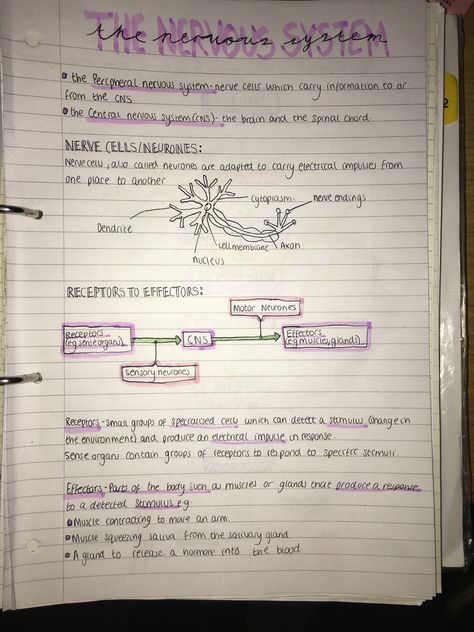 THE NERVOUS SYSTEM
the nervous system
the Peripheral nervous system - nerve cells which carry information to or
from the CNS
the Central nervous system (CNS) - the brain and the spinal chord.
2
NERVE CELLS/NEURONES:
Nerve cells, also called neurones are adapted to carry electrical impulses from
one place to another
cytoplasm
nerve endings
Dendrite
cell membrane
Axon
nucleus
RECEPTORS TO EFFECTORS:
Motor Neurones
Receptors
(eg sense organs)
CNS
Effectors
(eg muscles, glands)
Sensory neurones
Receptors - Small groups of specialised cells which can detect a stimulus (change in
the environment) and produce an electrical impulse in response.
Sense organs contain groups of receptors to respond to specific stimuli
Effectors - Parts of the body such as muscles or glands that produce a response
to a detected stimulus eg.
Muscle contracting to move an arm.
Muscle squeezing saliva from the salivary gland
A gland to release a hormone into the blood